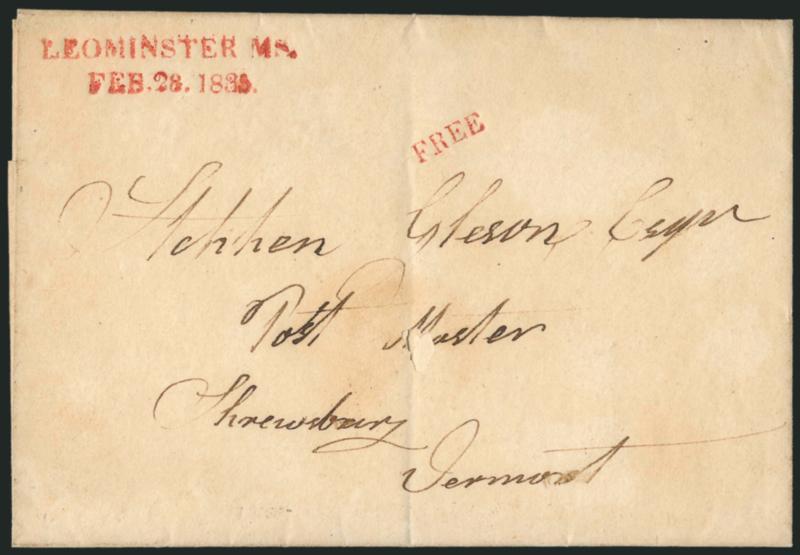 LEOMINSTER MS.
FEB. 28. 183
FREE
Stephen Gleson Esqr
Post Master
Shrewsbury
Vermont